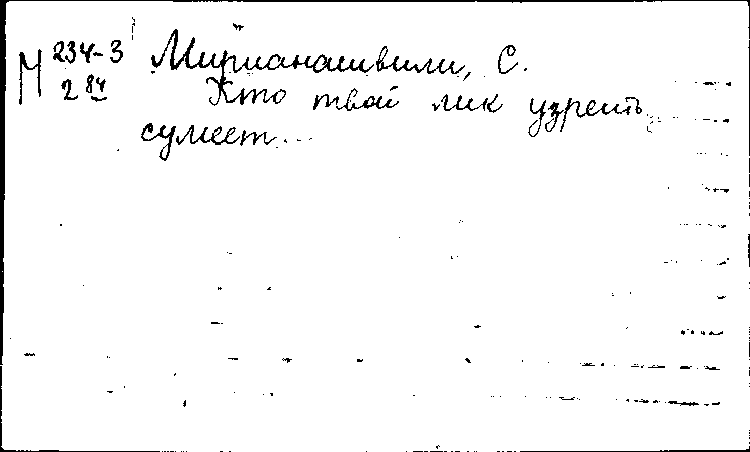 М 234-3 Мирианашвили, С.
2 84 Кто твой лик узреить
сумеет...